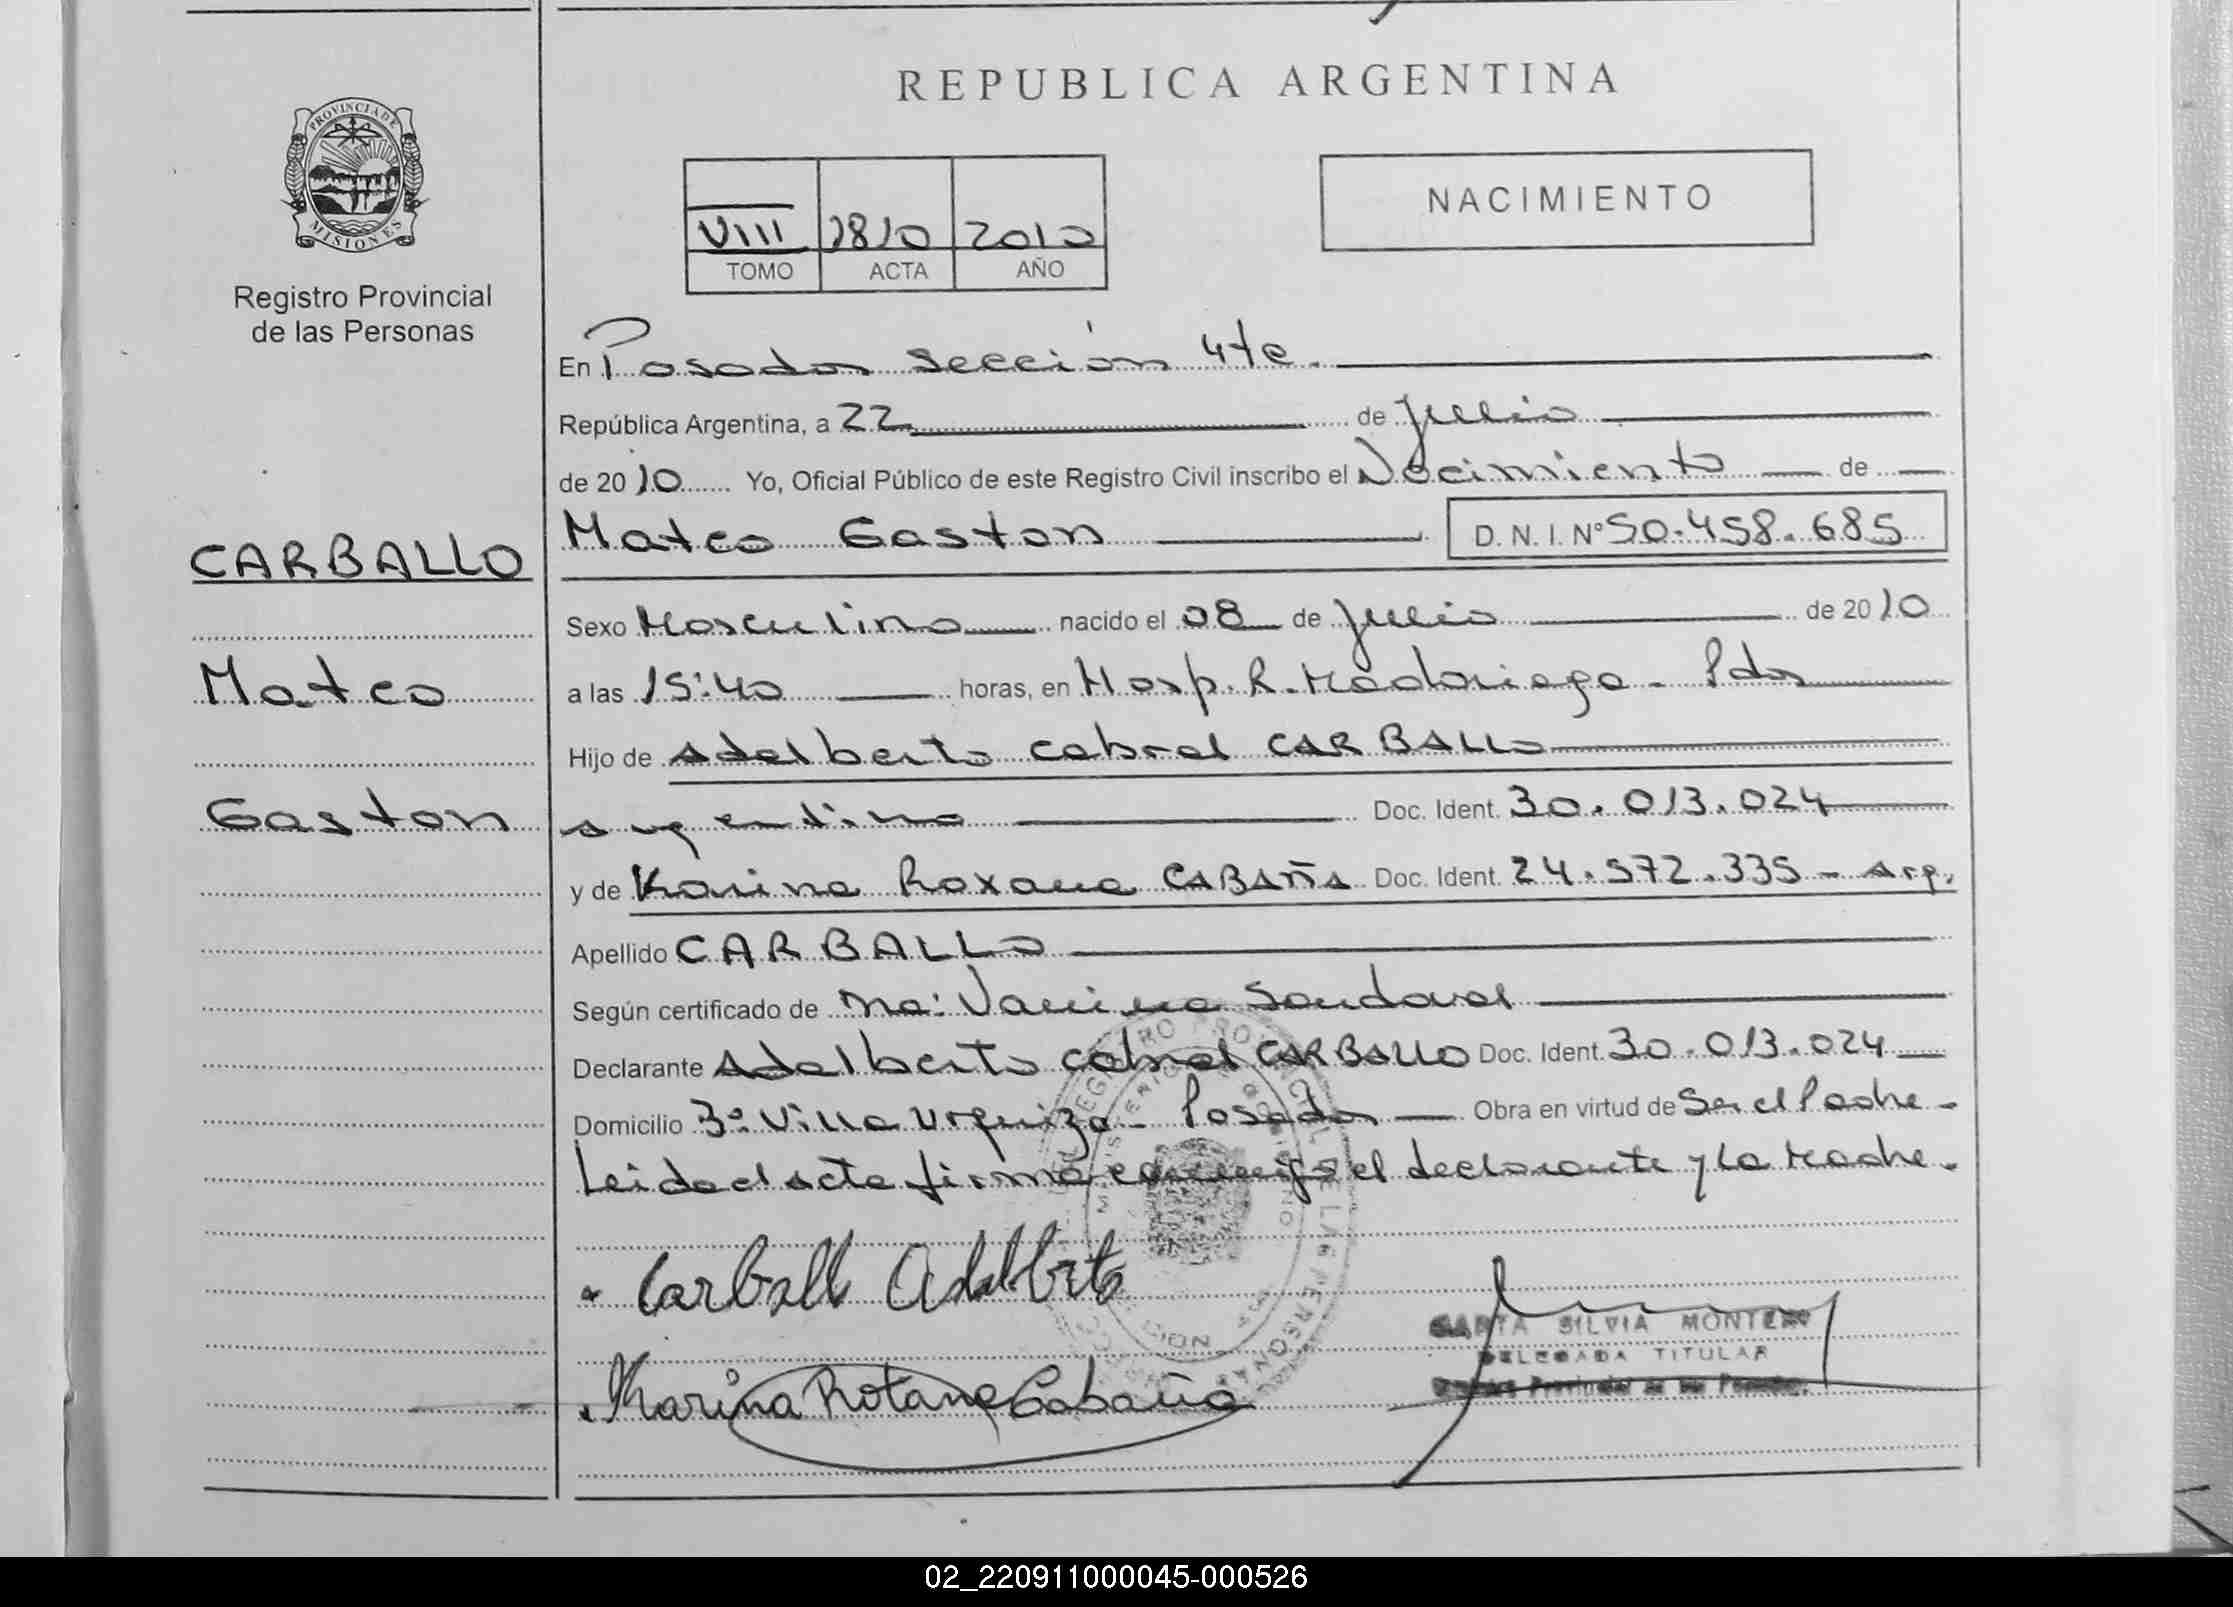 REPUBLICA ARGENTINA
PROVINCIA DE
MISIONES
Registro Provincial
de las Personas
NACIMIENTO
VIII 1810 2010
TOMO ACTA AÑO
En Posadas sección 4ta.
República Argentina, a 22 de julio
de 2010 Yo, Oficial Público de este Registro Civil inscribo el Nacimiento de
CARBALLO
Mateo
Gaston
Mateo Gaston D. N. I. Nº 50.458.685
Sexo Masculino nacido el 08 de julio de 2010
a las 15:40 horas, en Hosp. R. Madariaga - Pdas
Hijo de Adalberto Cabral CARBALLO
argentino Doc. Ident. 30.013.024
y de Karina Roxana CABAÑA Doc. Ident. 24.572.335 - Arg.
Apellido CARBALLO
Según certificado de Ma: Vanina Sandoval
Declarante Adalberto Cabral CARBALLO Doc. Ident. 30.013.024
Domicilio Bº Villa Urquiza - Posadas Obra en virtud de Ser el Padre -
Leida el acta firma conmigo el declarante y la Madre.
Carball Adalbrto
SILVIA MONTERO
DELEGADA TITULAR
Karina Rotana Cabaña
02_220911000045-000526